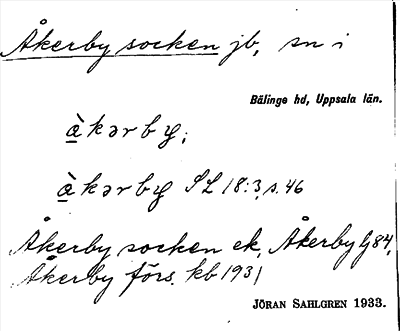 Åkerby socken jb, sn i
Bälinge hd, Uppsala län.
àkərby;
àkərby SL 18:3, s. 46
Åkerby socken ek, Åkerby Gg84,
Åkerby förs. kb 1931
JÖRAN SAHLGREN 1933.